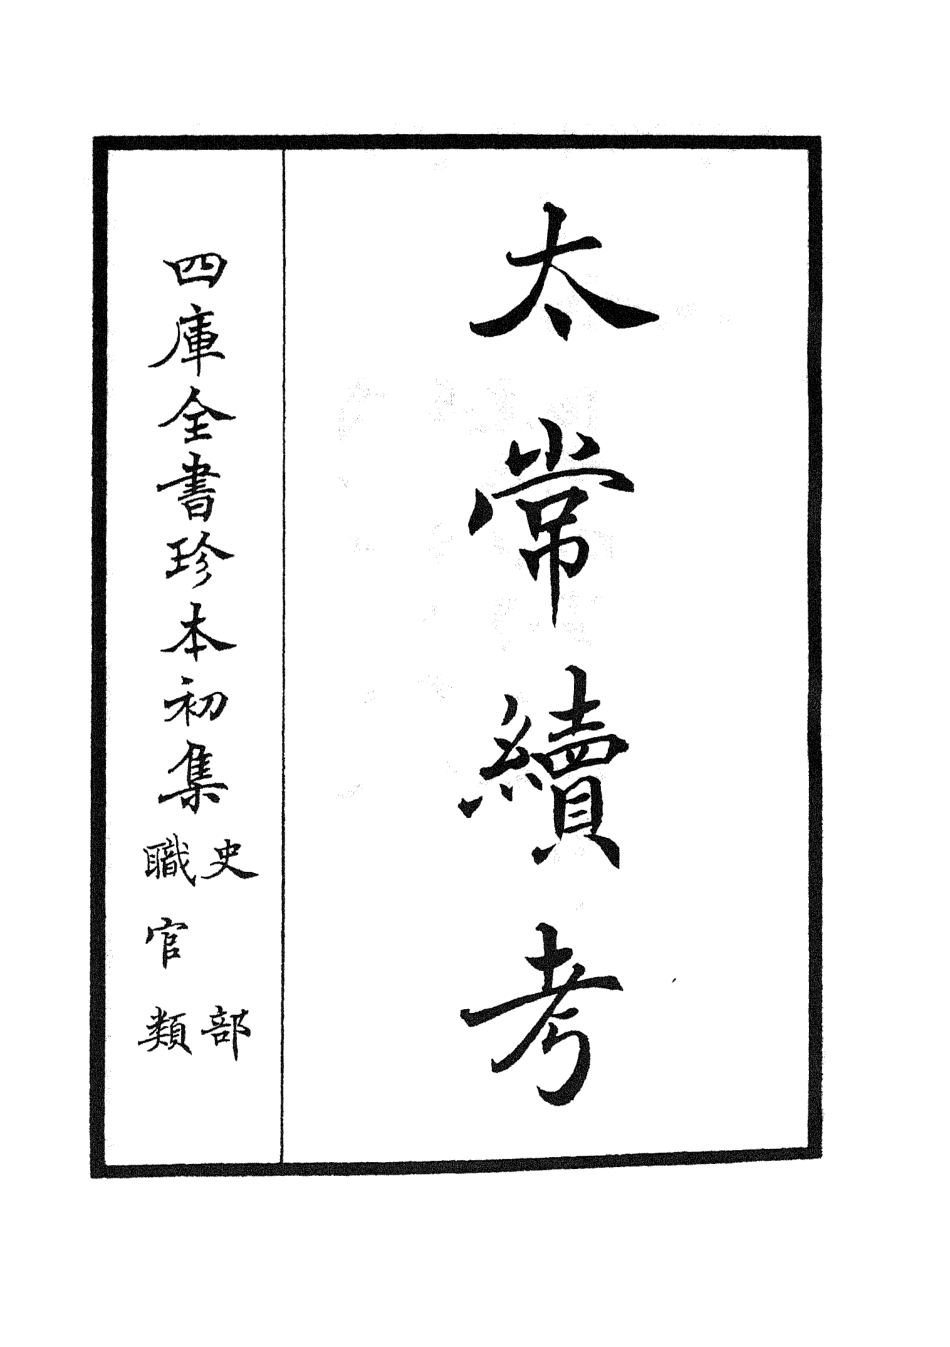 太常續考
四庫全書珍本初集
史部
職官類